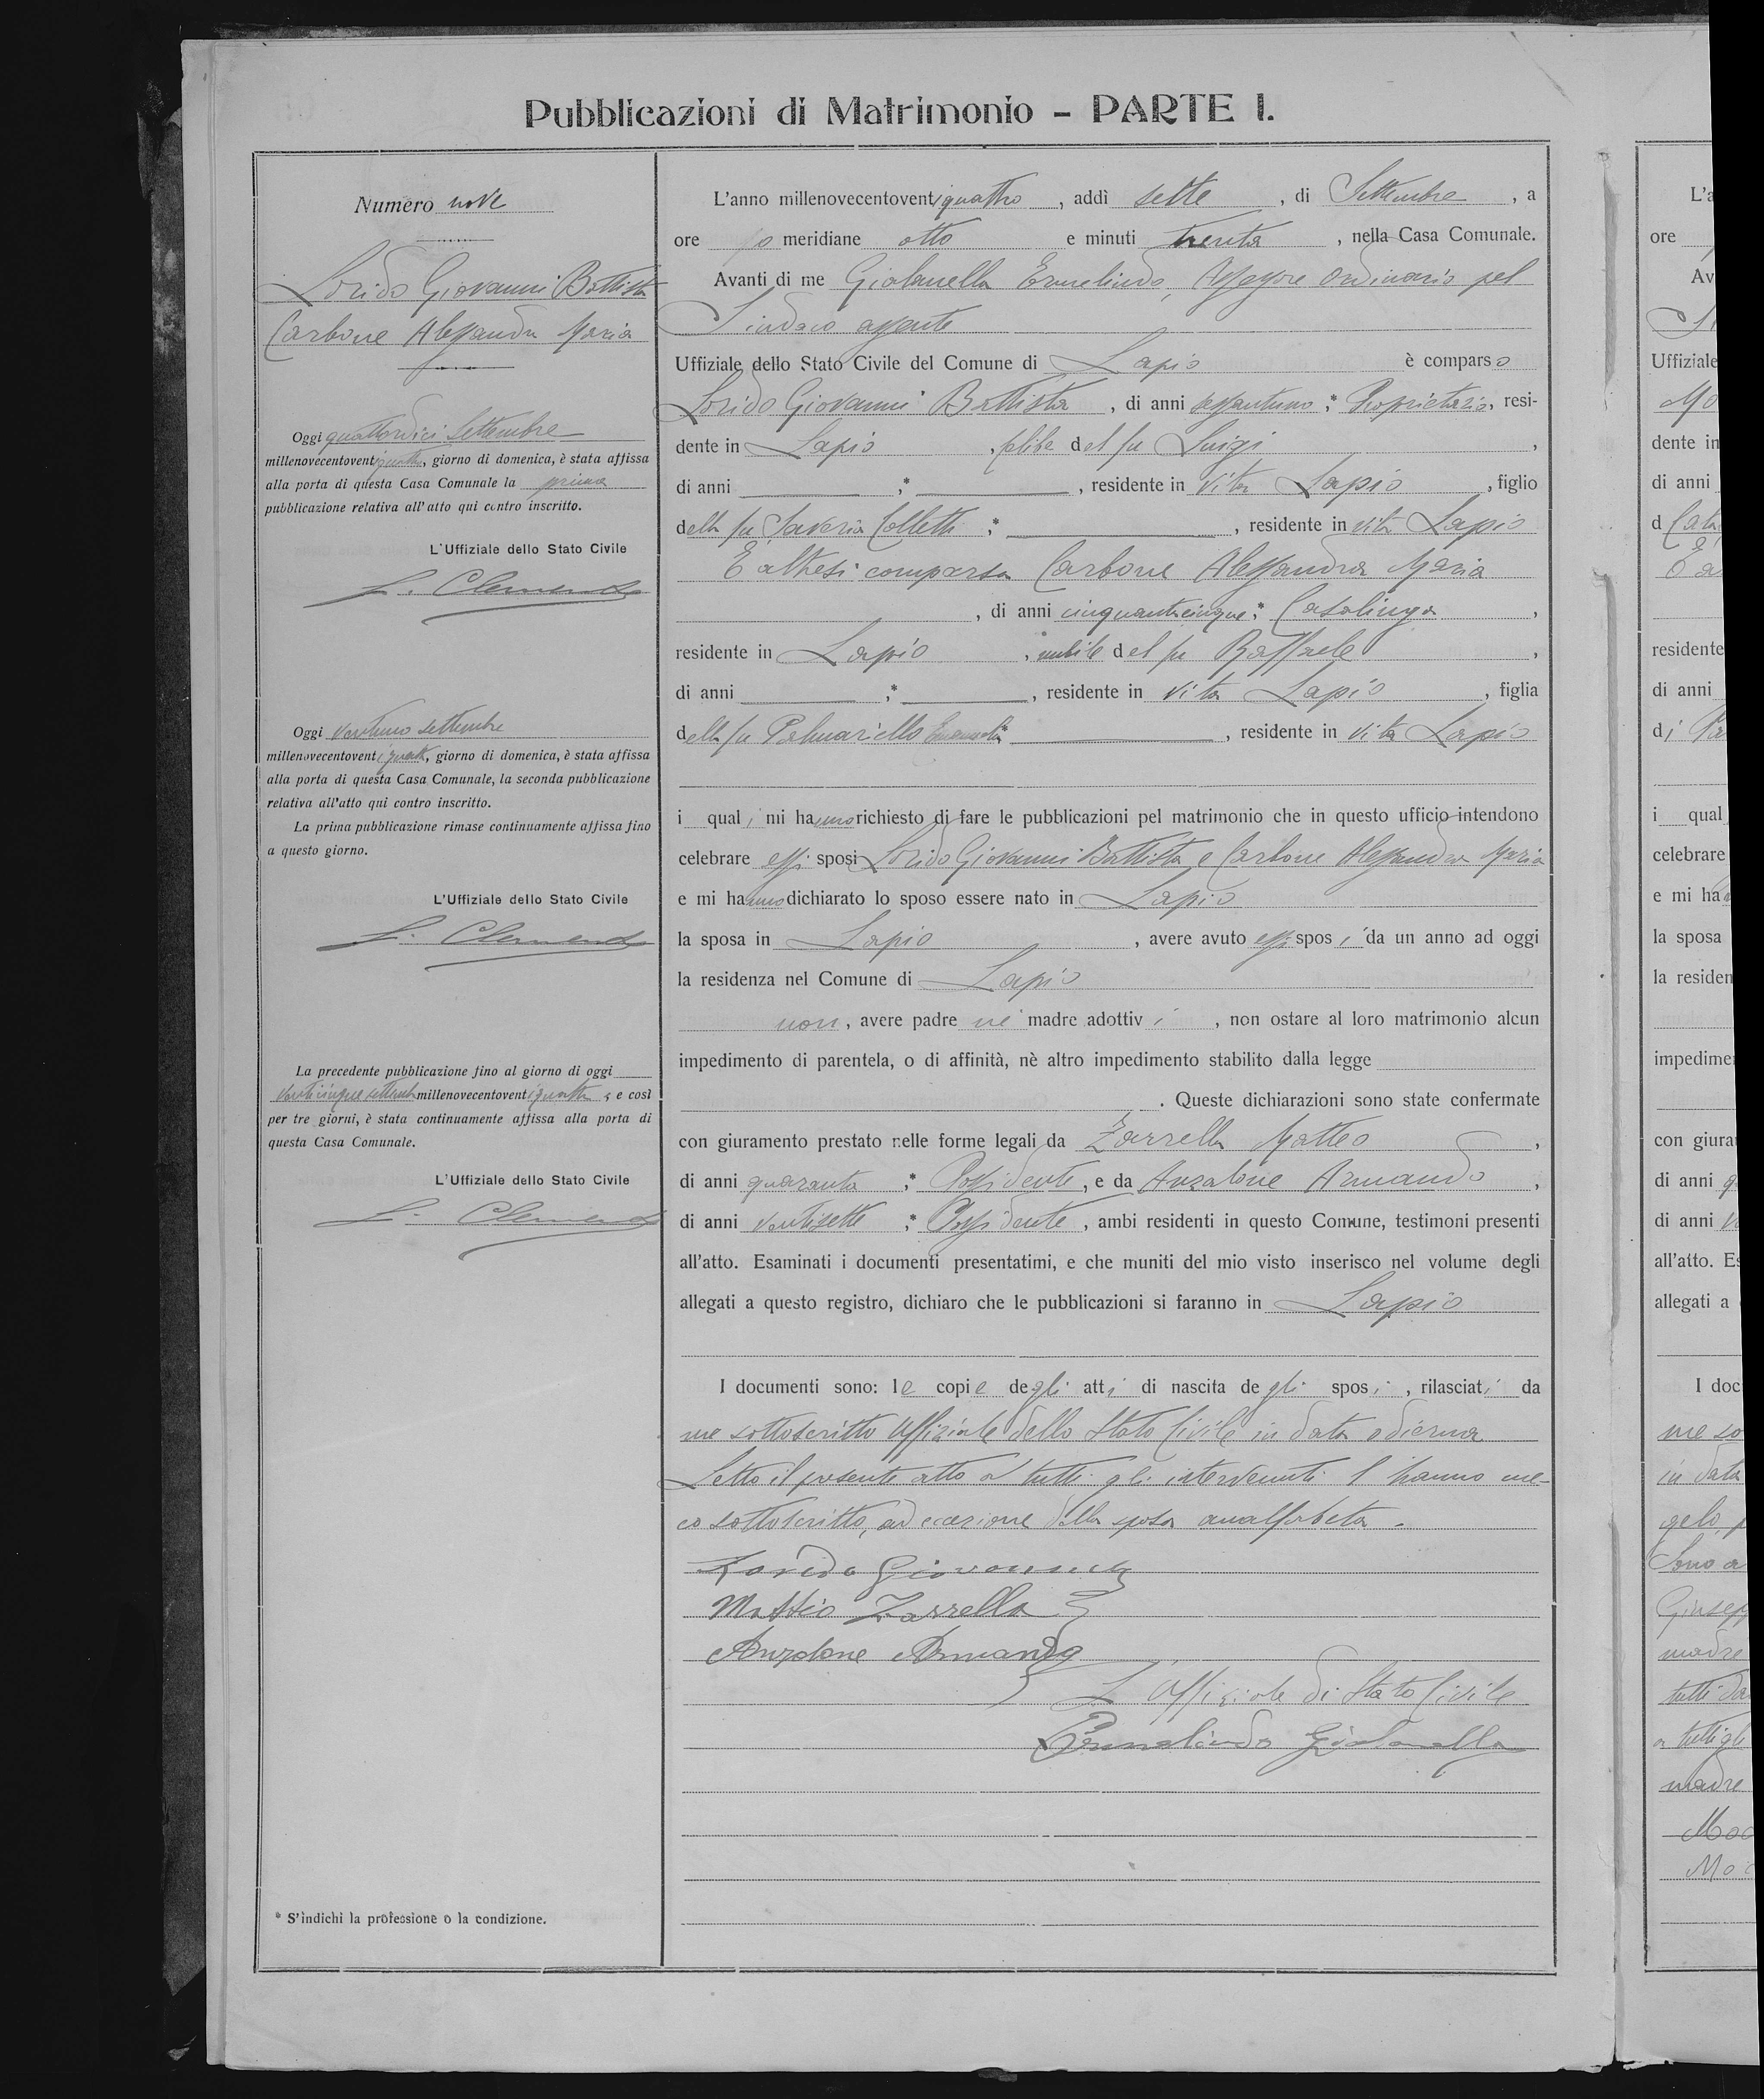 Pubblicazioni di Matrimonio - PARTE I.
Numero nove
Lorido Giovanni Battista
Carbone Alessandra Maria
Oggi quattordici Settembre
millenovecentoventiquattro, giorno di domenica, è stata affissa
alla porta di questa Casa Comunale la prima
pubblicazione relativa all'atto qui contro inscritto.
L'Uffiziale dello Stato Civile
L. Clemente
Oggi ventuno settembre
millenovecentoventiquattro, giorno di domenica, è stata affissa
alla porta di questa Casa Comunale, la seconda pubblicazione
relativa all'atto qui contro inscritto.
La prima pubblicazione rimase continuamente affissa fino
a questo giorno.
L'Uffiziale dello Stato Civile
L. Clemente
La precedente pubblicazione fino al giorno di oggi
venticinque settembre millenovecentoventiquattro, e così
per tre giorni, è stata continuamente affissa alla porta di
questa Casa Comunale.
L'Uffiziale dello Stato Civile
L. Clemente
* S'indichi la professione o la condizione.
L'anno millenovecentoventiquattro, addì sette, di Settembre, a
ore po meridiane otto e minuti trenta, nella Casa Comunale.
Avanti di me Giolanella Ermelindo, Assessore ordinario pel
Sindaco assente
Uffiziale dello Stato Civile del Comune di Lapio è comparso
Lorido Giovanni Battista, di anni sessantuno,* Proprietario, resi-
dente in Lapio, celibe del fu Luigi,
di anni ,* , residente in vita Lapio, figlio
della fu Saveria Colletti * , residente in vita Lapio
È altresì comparsa Carbone Alessandra Maria
, di anni cinquantacinque,* Casalinga,
residente in Lapio, nubile del fu Raffaele,
di anni ,* , residente in vita Lapio, figlia
della fu Palmariello Emanuela* , residente in vita Lapio
i quali mi hanno richiesto di fare le pubblicazioni pel matrimonio che in questo ufficio intendono
celebrare essi sposi Lorido Giovanni Battista e Carbone Alessandra Maria
e mi hanno dichiarato lo sposo essere nato in Lapio
la sposa in Lapio, avere avuto essi sposi da un anno ad oggi
la residenza nel Comune di Lapio
non, avere padre nè madre adottivi, non ostare al loro matrimonio alcun
impedimento di parentela, o di affinità, nè altro impedimento stabilito dalla legge
. Queste dichiarazioni sono state confermate
con giuramento prestato nelle forme legali da Zarrella Matteo,
di anni quaranta,* Possidente, e da Anzalone Armando,
di anni ventisette,* Possidente, ambi residenti in questo Comune, testimoni presenti
all'atto. Esaminati i documenti presentatimi, e che muniti del mio visto inserisco nel volume degli
allegati a questo registro, dichiaro che le pubblicazioni si faranno in Lapio
I documenti sono: le copie degli atti di nascita degli sposi, rilasciati da
me sottoscritto Uffiziale dello Stato Civile in data odierna
Letto il presente atto a tutti gli intervenuti l'hanno me-
co sottoscritto, ad eccezione della sposa analfabeta.
Lorido Giovanni
Matteo Zarrella
Anzalone Armando
L'Uffiziale di Stato Civile
Ermelindo Giolanella
L'a
ore
Av
Uffiziale
Mo
dente in
di anni
residente
di anni
i qual
celebrare
e mi ha
la sposa
la residen
impedimen
con giura
di anni
di anni
all'atto. Es
allegati a
I doc
me so
in data
gelo
Giusep
madre
tutti
a tutti gli
madre